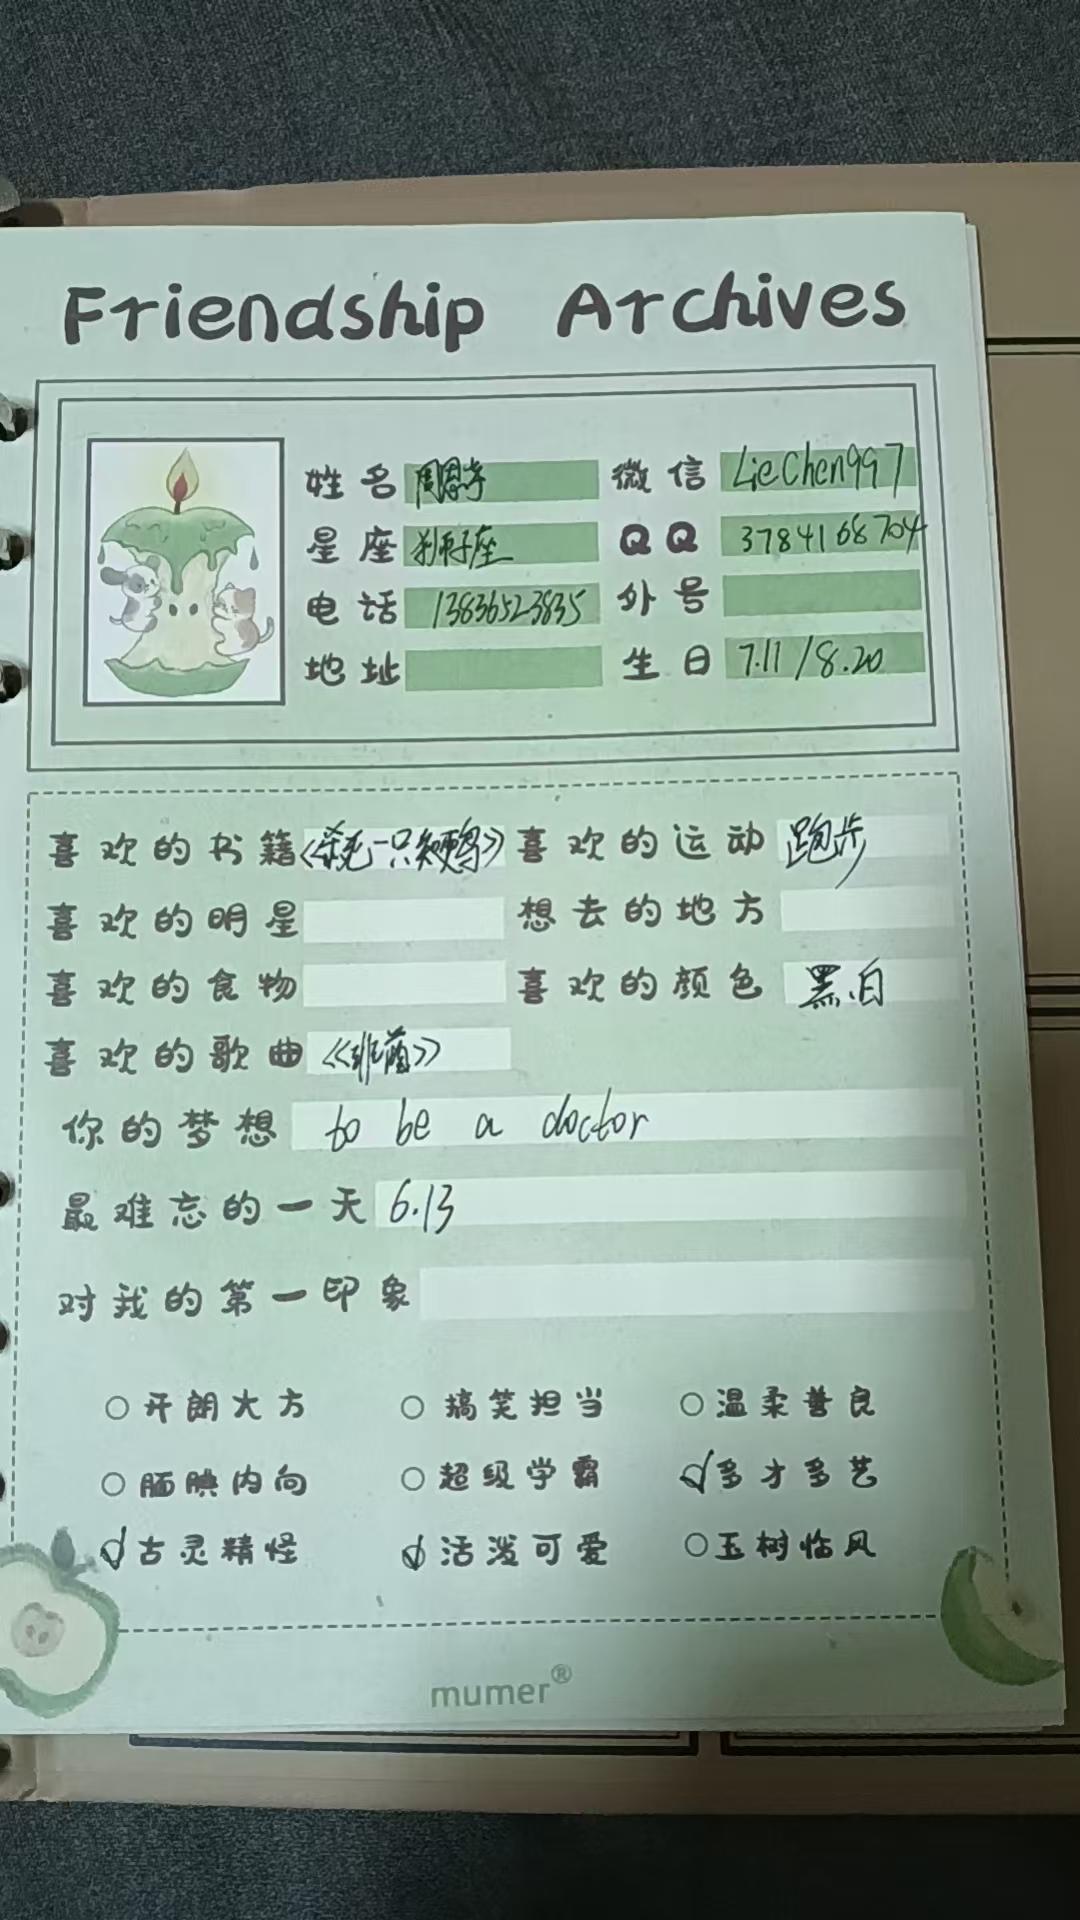 Friendship Archives
姓名 周恩孝 微信 LieChen997
星座 狮子座 QQ 3784168704
电话 13836523835 外号
地址 生日 7.11/8.20
喜欢的书籍《杀死一只知更鸟》 喜欢的运动 跑步
喜欢的明星 想去的地方
喜欢的食物 喜欢的颜色 黑、白
喜欢的歌曲
你的梦想 to be a doctor
最难忘的一天 6.13
对我的第一印象
开朗大方 搞笑担当 温柔善良
腼腆内向 超级学霸 多才多艺
古灵精怪 活泼可爱 玉树临风
mumer®